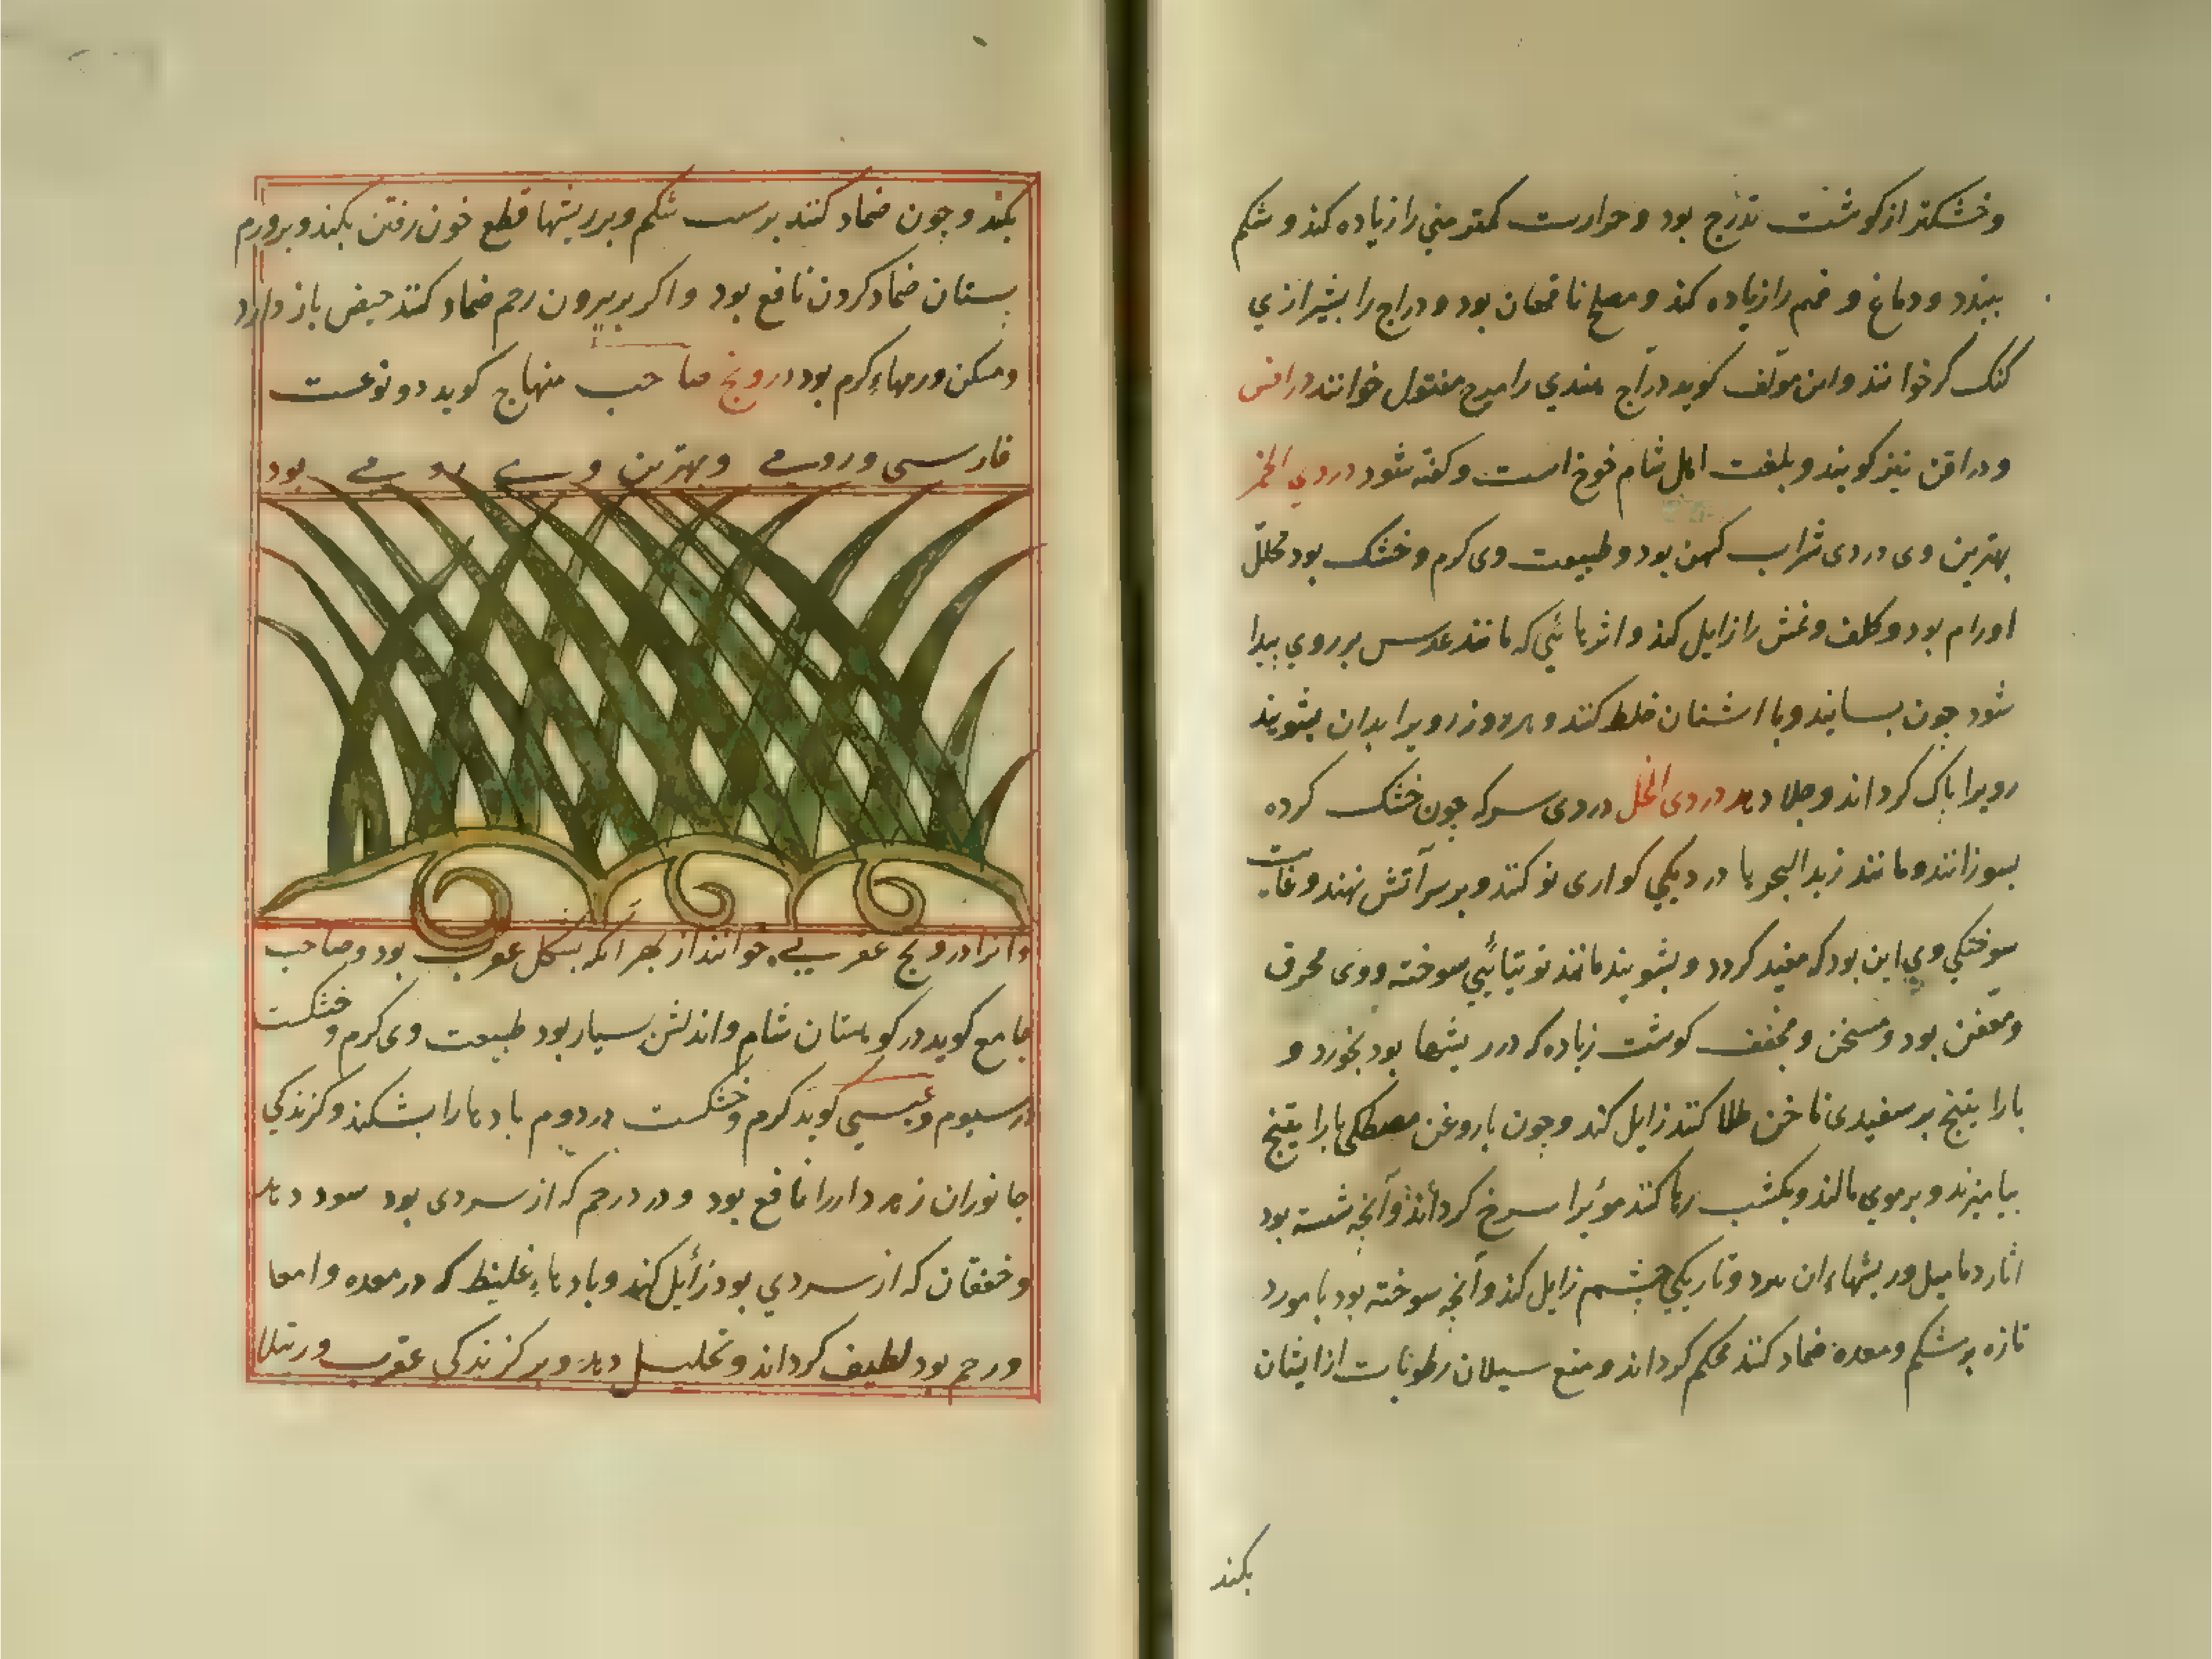 وخشکتر از کوشت تذرج بود و حرارت کمتر منی را زیاده کند و شکم
ببندد و دماغ و فهم را زیاده کند و مصلح ناقهان بود و دراج را بشیرازي
کنک کر خوانند و ابن مولف کوید درآج هندي را میرح مفتول خوانند دراقن
و دراقن نیز کویند و بلغت اهل شام خوخ است و کفته شود دردي الخمر
بهترین وی دردی شراب کهن بود و طبیعت وی کرم و خشک بود محلل
اورام بود و کلف و نمش را زایل کند و اثرهائی که مانند عدس بر روي پیدا
شود چون بسایند و با اشنان خلط کنند و هر روز رویرا بدان بشویند
رویرا پاک کرداند و جلا دهد دردی الخل دردی سرکه چون خشک کرده
بسوزانند و مانند زبد البحر یا در دیکي کواری نو کنند و بر سر آتش نهند و غایت
سوختکي وي این بود که سفید کردد و بشویند مانند توتیائي سوخته و وی محرق
و معفن بود و مسخن و مجفف کوشت زیاده که در ریشها بود بخورد و
با راتینج بر سفیدی ناخن طلا کنند زایل کند و چون با روغن مصطکی با راتینج
بیامیزند و بر موي مالند و یکشب رها کنند مویرا سرخ کرداند و آنچه شسته بود
اثار دمامیل و ریشهاء ان ببرد و تاریکي چشم زایل کند و آنچه سوخته بود با مورد
تازه بر شکم و معده ضماد کنند محکم کرداند و منع سیلان رطوبات از ایشان
بکند
بکند و چون ضماد کنند بر شکم و بر ریشها قطع خون رفتن بکند و بر ورم
پستان ضماد کردن نافع بود و اکر بر بیرون رحم ضماد کنند حیض باز دارد
و مسکن ورمهاء کرم بود درونج صاحب منهاج کوید دو نوعست
فارسی و رومی و بهترین وی رومی بود
و انرا درونج عقربی خوانند از بهر انکه بشکل عقرب بود و صاحب
جامع کوید در کوهستان شام و اندلس بسیار بود طبیعت وی کرم و خشکست
در سیوم و عیسی کوید کرم و خشکست در دوم بادها را بشکند و کزندکي
جانوران زهردار را نافع بود و درد رحم که از سردی بود سود دهد
و خفقان که از سردي بود زائل کند و بادهاء غلیظ که در معده و امعا
و رحم بود لطیف کرداند و تحلیل دهد و بر کزندکی عقرب و رتیلا